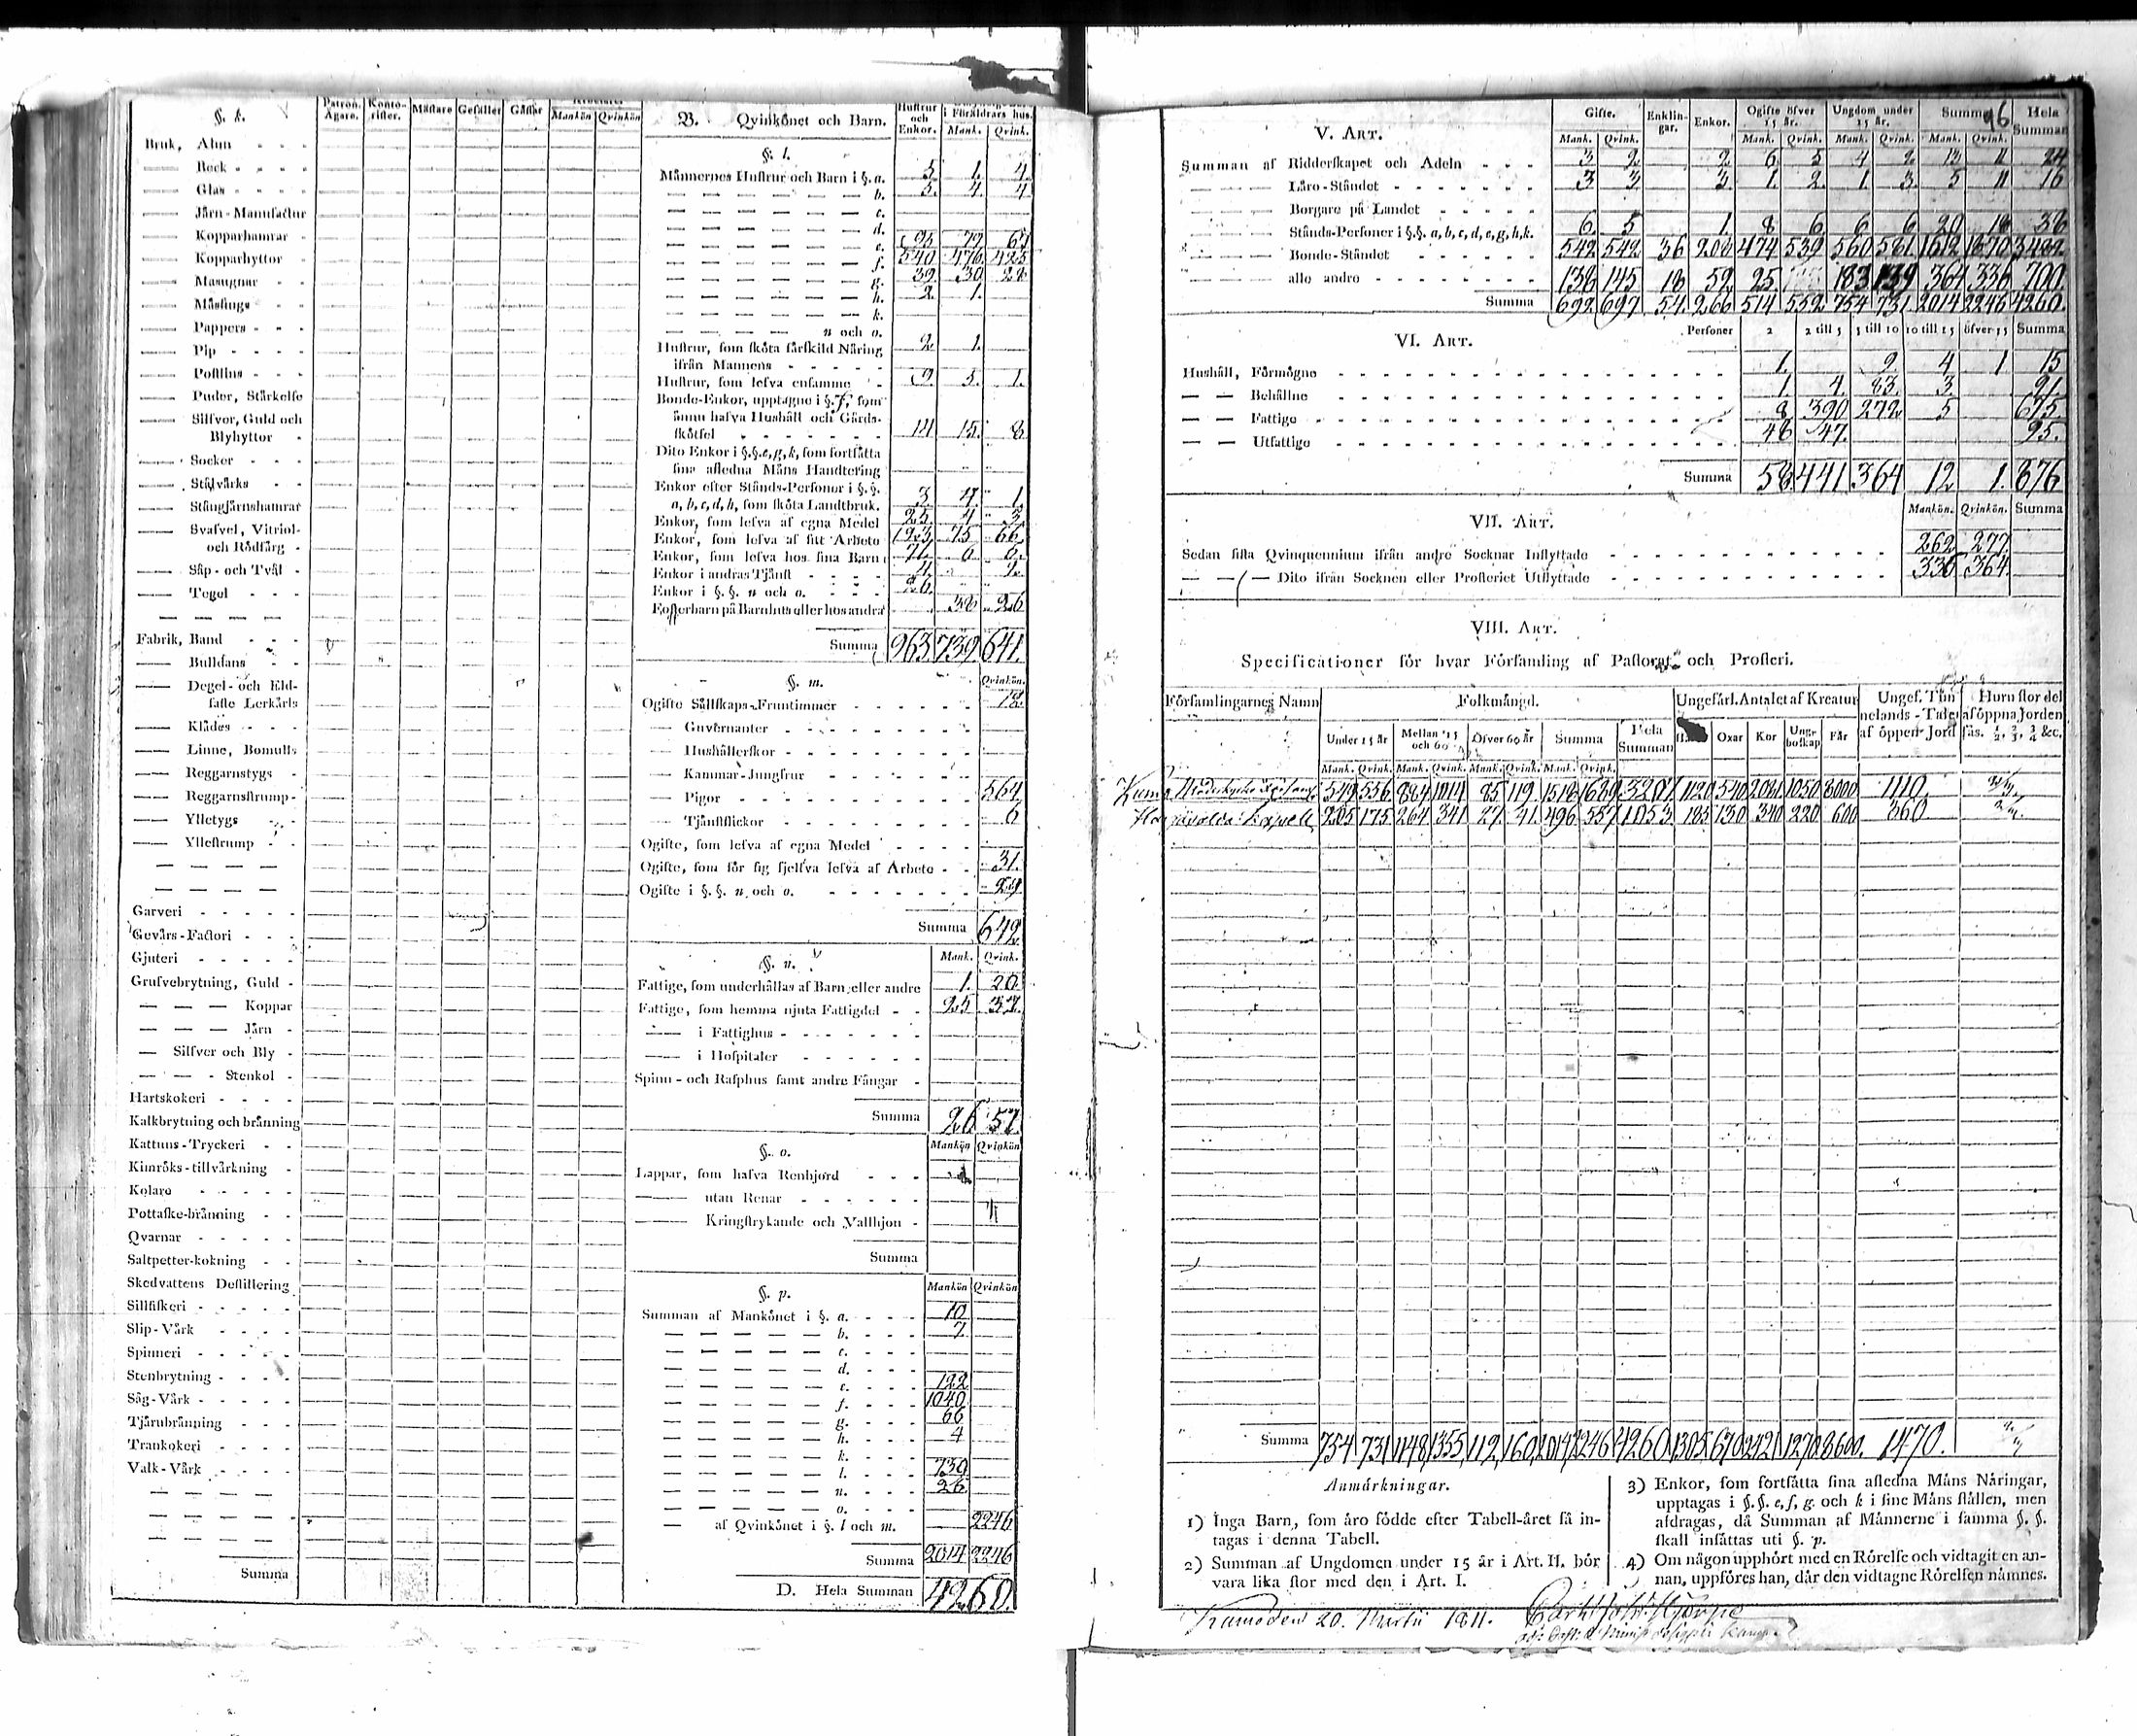 §. k. Patron. Ägare. Konto-rister. Mästare Gesäller Gåssar Mankön Qvinkön
Bruk, Alun
— Beck
— Glas
— Järn-Manufactur
— Kopparhamrar
— Kopparhyttor
— Masugnar
— Mässings
— Pappers
— Pip
— Postlins
— Puder, Stärkelse
— Silfver, Guld och
Blyhyttor
— Socker
— Stålvärks
— Stångjärnshamrar
— Svafvel, Vitriol-
och Rödfärg
— Såp- och Tvål
— Tegel
Fabrik, Band
— Bulldans
— Degel- och Eld-
faste Lerkärls
— Klädes
— Linne, Bomulls
— Reggarnstygs
— Reggarnsstrump-
— Ylletygs
— Yllestrump
Garveri
Gevärs-Factori
Gjuteri
Grufvebrytning, Guld
— — — Koppar
— — — Järn
— Silfver och Bly
— — Stenkol
Hartskokeri
Kalkbrytning och bränning
Kattuns-Tryckeri
Kimröks-tillvärkning
Kolare
Pottaske-bränning
Qvarnar
Saltpetter-kokning
Skedvattens Destillering
Sillfiskeri
Slip-Värk
Spinneri
Stenbrytning
Såg-Värk
Tjärubränning
Trankokeri
Valk-Värk
Summa
B. Qvinkönet och Barn. Hustrur och Enkor. i Föräldrars hus. Mank. Qvink.
§. l.
Männernes Hustrur och Barn i §. a. 5. 1. 4.
b. 5. 4. 4
c.
d.
e. 93 77 67
f. 540 476 425
g. 39 30 28
h. 2. 1.
k.
n och o.
Hustrur, som sköta särskild Näring 2 1.
ifrån Mannens
Hustrur, som lefva ensamme 9. 5. 1.
Bonde-Enkor, upptagne i §. f, som
ännu hafva Hushåll och Gårds-
skötsel 14 15. 8
Dito Enkor i §.§. e, g, k, som fortsätta
sina afledna Mäns Handtering
Enkor efter Stånds-Personer i §.§.
a, b, c, d, h, som sköta Landtbruk. 3 4. 1.
Enkor, som lefva af egna Medel 25. 4 3
Enkor, som lefva af sitt Arbete 123 75 66
Enkor, som lefva hos sina Barn 71. 6 6.
Enkor i andras Tjänst 4. 2.
Enkor i §.§. n och o. 26.
Fosterbarn på Barnhus eller hos andra 38 26
Summa 963 739. 641.
§. m. Qvinkön.
Ogifte Sällskaps-Fruntimmer 18
— Guvernanter
— Hushållerskor
— Kammar-Jungfrur
— Pigor 564
— Tjänstflickor 6
Ogifte, som lefva af egna Medel
Ogifte, som för sig sjelfva lefva af Arbete 31.
Ogifte i §.§. n och o.
Summa 642.
§. n. Mank. Qvink.
Fattige, som underhållas af Barn eller andre 1. 20
Fattige, som hemma njuta Fattigdel 25 37.
— i Fattighus
— i Hospitaler
Spinn- och Rasphus samt andre Fångar
Summa 26 57.
§. o. Mankön Qvinkön
Lappar, som hafva Renhjord
— utan Renar
— Kringstrykande och Vallhjon
Summa
§. p. Mankön Qvinkön
Summan af Mankönet i §. a. 10
b. 7
c.
d.
e. 122
f. 1040
g. 66
h. 4
k.
l. 739
n. 26
o.
— af Qvinkönet i §. l och m. 2246
Summa 2014 2246
D. Hela Summan 4260.
96
V. Art. Gifte. Mank. Qvink. Enklin-gar. Enkor. Ogifte öfver 15 år. Mank. Qvink. Ungdom under 15 år. Mank. Qvink. Summa Mank. Qvink. Hela Summan
Summan af Ridderskapet och Adeln 3 2 2 6 5 4 2 13 11 24
— Läro-Ståndet 3 3 3 1. 2. 1 3. 5 11 16
— Borgare på Landet
— Stånds-Personer i §.§. a, b, c, d, e, g, h, k. 6. 5 1. 8 6. 6 6 20 18 38
— Bonde-Ståndet 542 542 36 208 474 539 560 581. 1612 1870 3482
— alle andre 138 145 18 52 25. 183 139 364 336 700.
Summa 692 697 54. 266 514 552 754 731. 2014 2246 4260.
VI. Art. Personer 2 2 till 5 5 till 10 10 till 15 öfver 15 Summa
Hushåll, Förmögne 1. 9. 4 1 15
— — Behållne 1. 4. 83. 3 91.
— — Fattige 8 390 272 5 675.
— — Utfattige 48 47. 95.
Summa 58 441 364 12 1. 876
VII. Art. Mankön. Qvinkön. Summa
Sedan sista Qvinquennium ifrån andre Socknar Inflyttade 262 277.
— — Dito ifrån Socknen eller Prosteriet Utflyttade 336 364.
VIII. Art.
Specificationer för hvar Församling af Pastorat och Prosteri.
Församlingarnes Namn Folkmängd. Ungefärl. Antalet af Kreatur Ungef. Tun nelands-Talet af öppen Jord Huru stor del af öppna Jorden fås. ½, ⅔, ¾ &c.
Under 15 år Mellan 15 och 60 Öfver 60 år Summa Hela Summan Oxar Kor Unge boskap Får
Mank. Qvink. Mank. Qvink. Mank. Qvink. Mank. Qvink.
Kumla Moderkyrko 549 556 884 1014 85. 119. 1518 1689 3207 1120 540 2081 1050 8000 1110
Kapell 205 175 264 341 27. 41. 496 557 1053 185 130 340 220 600 360
Summa 754 731 1148 1355 112 160 2014 2246 4260 1305 670 2421 1270 8600. 1470.
Anmärkningar.
1) Inga Barn, som äro födde efter Tabell-året få in-
tagas i denna Tabell.
2) Summan af Ungdomen under 15 år i Art. II. bör
vara lika stor med den i Art. I.
3) Enkor, som fortsätta sina afledna Mäns Näringar,
upptagas i §.§. e, f, g. och k i sine Mäns ställen, men
afdragas, då Summan af Männerne i samma §.§.
skall insättas uti §. p.
4) Om någon upphört med en Rörelse och vidtagit en an-
nan, uppföres han, där den vidtagne Rörelsen nämnes.
Kumla den 20. Martii 1811.